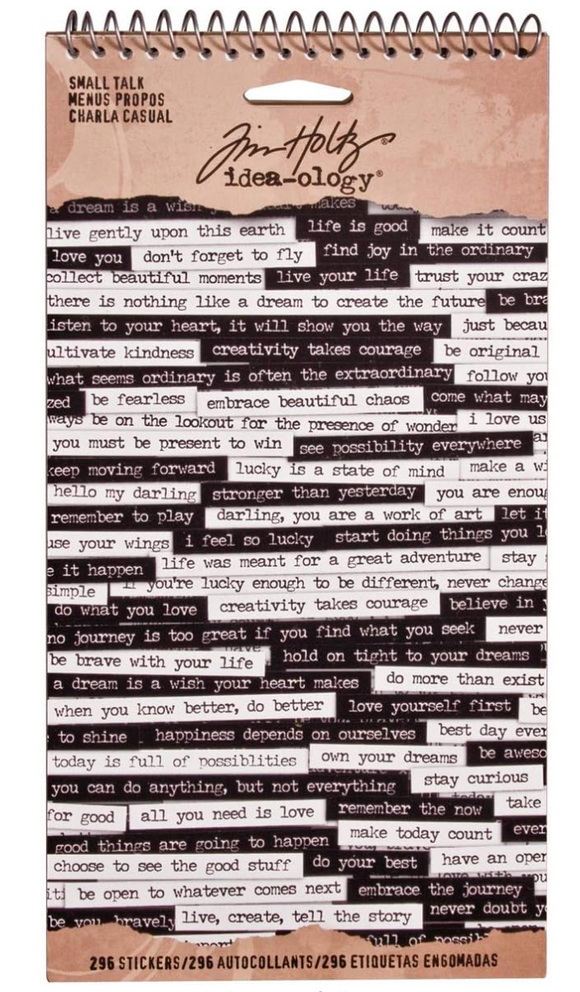 SMALL TALK
MENUS PROPOS
CHARLA CASUAL
Tim Holtz®
idea-ology®
a dream is a wish makes
live gently upon this earth life is good make it count
love you don't forget to fly find joy in the ordinary
collect beautiful moments live your life trust your craz
there is nothing like a dream to create the future be bra
isten to your heart, it will show you the way just becau
ultivate kindness creativity takes courage be original
what seems ordinary is often the extraordinary follow you
zed be fearless embrace beautiful chaos come what may
ways be on the lookout for the presence of wonder i love us
you must be present to win see possibility everywhere
keep moving forward lucky is a state of mind make a wi
hello my darling stronger than yesterday you are enoug
remember to play darling, you are a work of art let it
use your wings i feel so lucky start doing things you l
e it happen life was meant for a great adventure stay
simple if you're lucky enough to be different, never change
do what you love creativity takes courage believe in y
no journey is too great if you find what you seek never
be brave with your life hold on tight to your dreams
a dream is a wish your heart makes do more than exist
when you know better, do better love yourself first be
to shine happiness depends on ourselves best day ever
today is full of possiblities own your dreams be aweso
you can do anything, but not everything stay curious
for good all you need is love remember the now take
good things are going to happen make today count ever
choose to see the good stuff do your best have an open
be open to whatever comes next embrace the journey
be you, bravely live, create, tell the story never doubt y
full of possib
296 STICKERS/296 AUTOCOLLANTS/296 ETIQUETAS ENGOMADAS